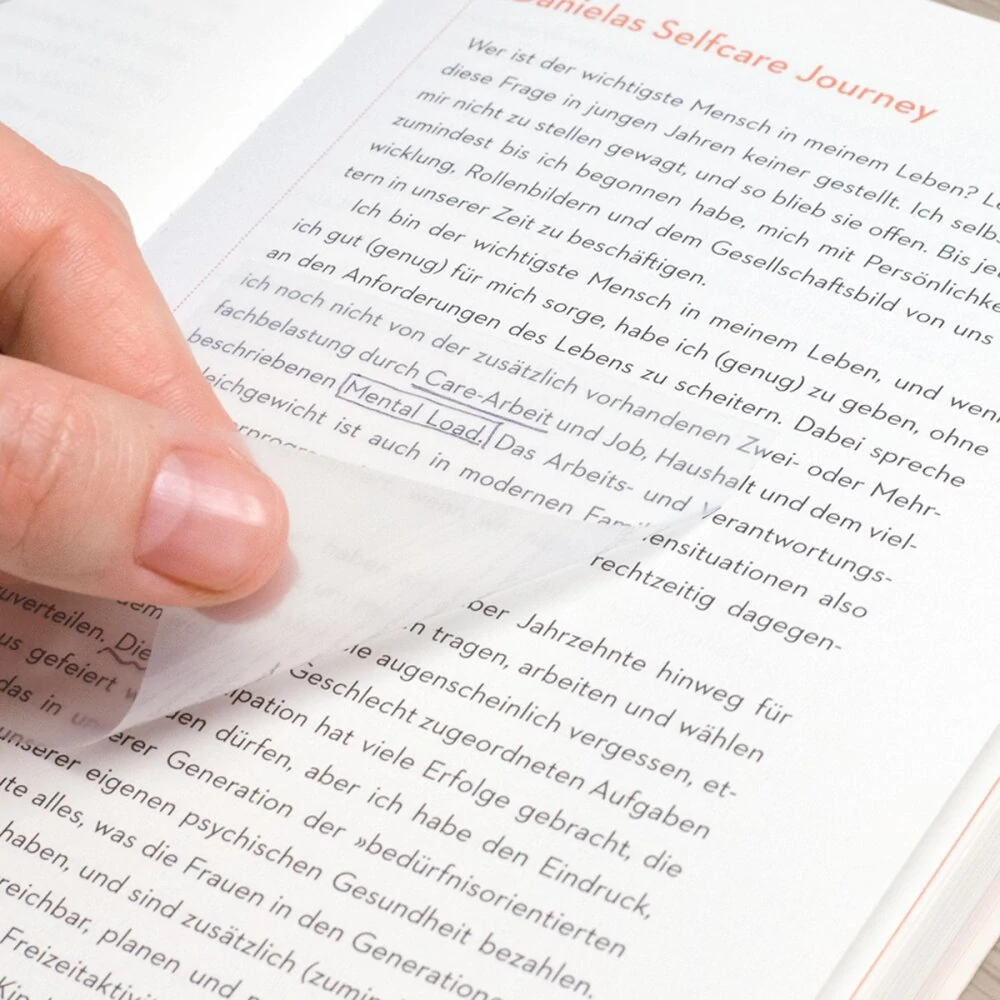 Danielas Selfcare Journey
Wer ist der wichtigste Mensch in meinem Leben?
diese Frage in jungen Jahren keiner gestellt. Ich
mir nicht zu stellen gewagt, und so blieb sie offen. Bis
zumindest bis ich begonnen habe, mich mit
wicklung, Rollenbildern und dem Gesellschaftsbild von uns
tern in unserer Zeit zu beschäftigen.
Ich bin der wichtigste Mensch in meinem Leben, und wenn
ich gut (genug) für mich sorge, habe ich (genug) zu geben, ohne
an den Anforderungen des Lebens zu scheitern. Dabei spreche
ich noch nicht von der zusätzlich vorhandenen Zwei- oder Mehr-
fachbelastung durch Care-Arbeit und Job, Haushalt und dem viel-
beschriebenen Mental Load. Das Arbeits- und Verantwortungs-
leichgewicht ist auch in modernen Familiensituationen also
rechtzeitig dagegen-
ber Jahrzehnte hinweg für
dem n tragen, arbeiten und wählen
uverteilen. Die ie augenscheinlich vergessen, et-
us gefeiert Geschlecht zugeordneten Aufgaben
das in ipation hat viele Erfolge gebracht, die
unserer den dürfen, aber ich habe den Eindruck,
erer Generation der »bedürfnisorientierten
unserer eigenen psychischen Gesundheit bezahlen.
ute alles, was die Frauen in den
haben, und sind zusätzlich
reichbar, planen und